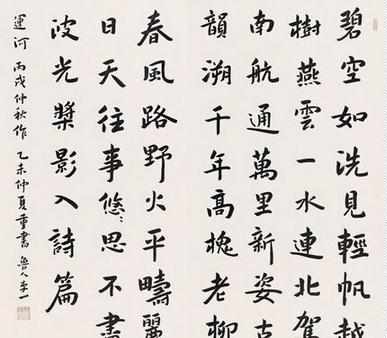 碧空如洗見輕帆越
樹燕雲一水連北駕
南航通萬里新姿古
韻溯千年高槐老柳
春風路野火平疇麗
日天往事悠〻思不盡
波光槳影入詩篇
運河 丙戌仲秋作 乙未仲夏重書 魯人